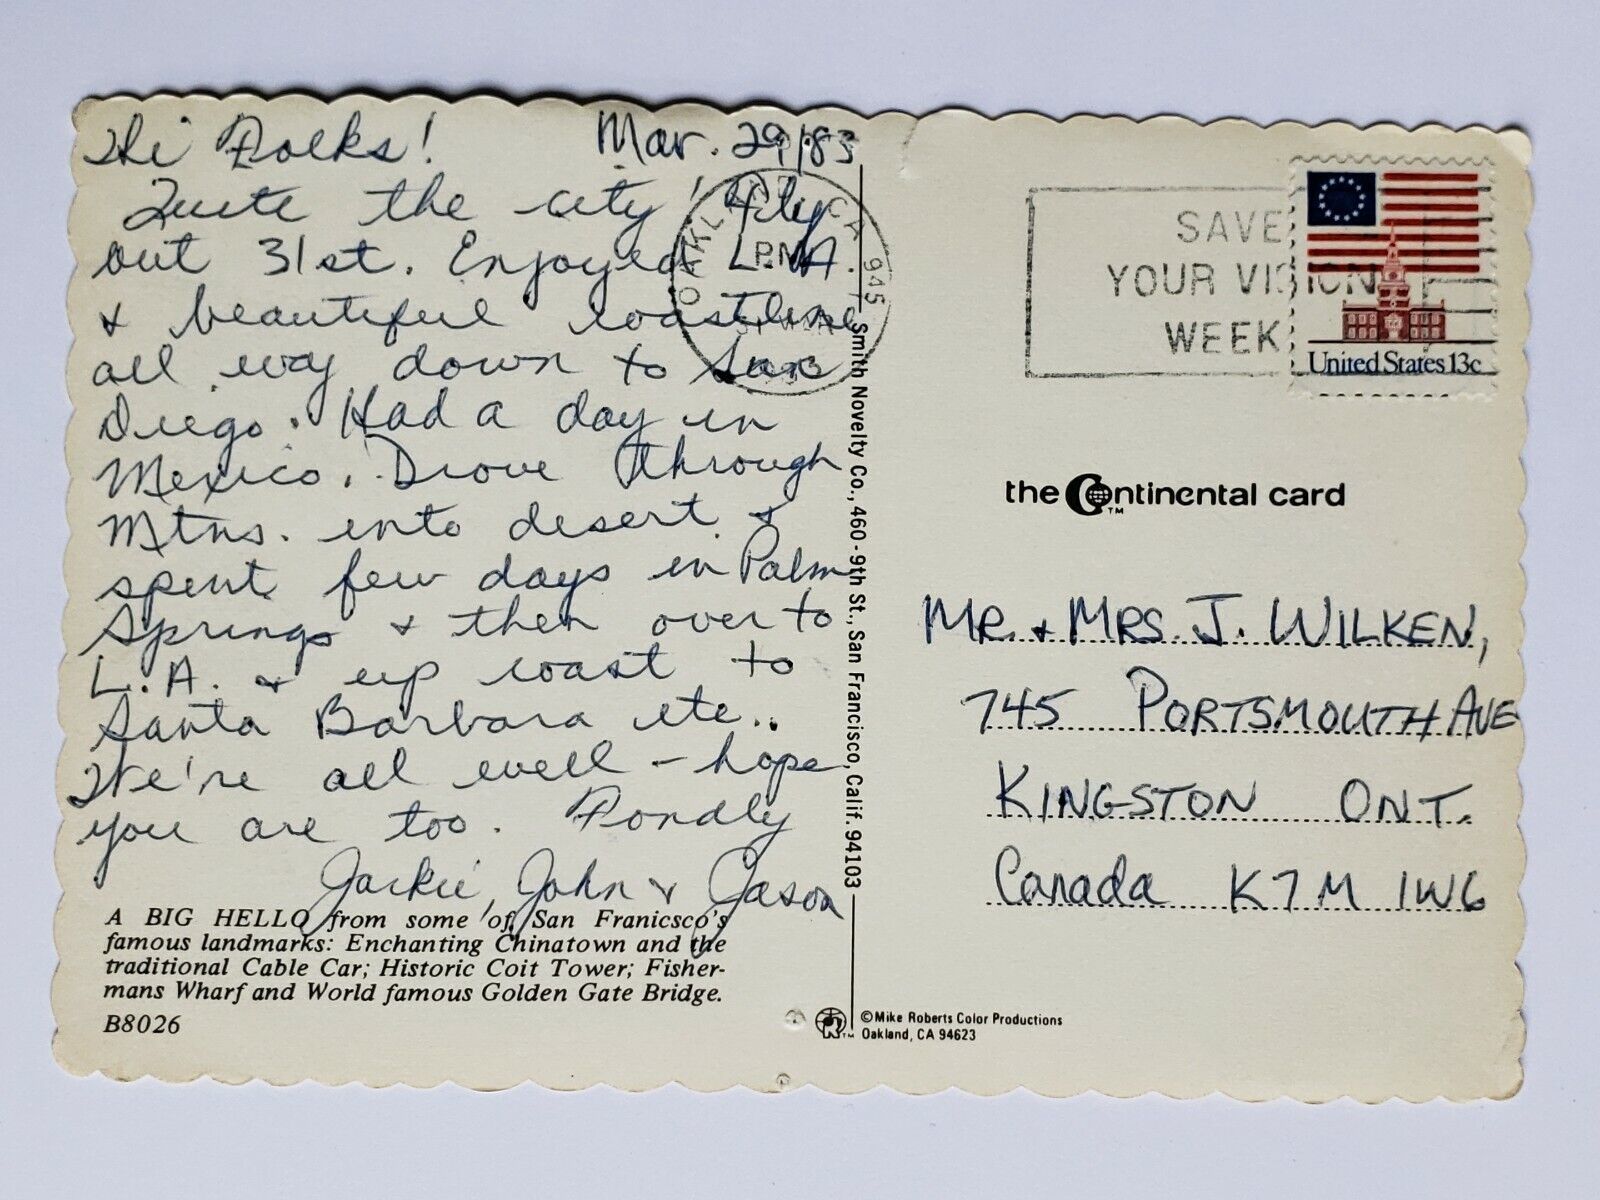 Hi Folks! Mar. 29/83
Quite the city! Fly
out 31st. Enjoyed L.A.
& beautiful coastline
all way down to San
Diego. Had a day in
Mexico. Drove through
Mtns. into desert &
spent few days in Palm
Springs & then over to
L.A. & up coast to
Santa Barbara etc..
We're all well - hope
you are too. Fondly
Jackie, John & Jason
A BIG HELLO from some of San Franicsco's
famous landmarks: Enchanting Chinatown and the
traditional Cable Car; Historic Coit Tower; Fisher-
mans Wharf and World famous Golden Gate Bridge.
B8026
OAKLAND, CA 945
PM
Smith Novelty Co., 460-9th St., San Francisco, Calif. 94103
SAVE
YOUR VISION
WEEK
United States 13c
the Continental card
TM
MR. & MRS. J. WILKEN,
745 PORTSMOUTH AVE
KINGSTON ONT.
Canada K7M 1W6
TM
©Mike Roberts Color Productions
Oakland, CA 94623